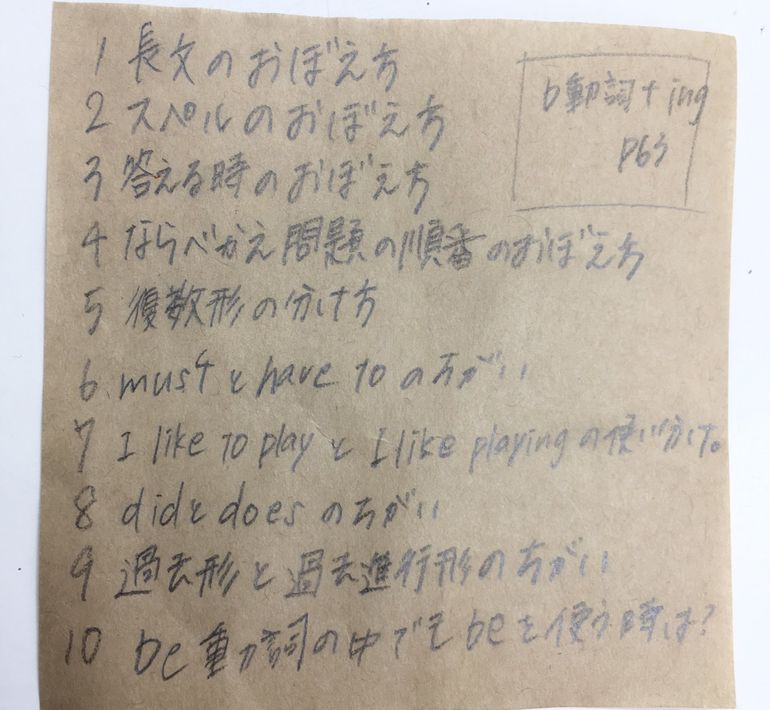 1 長文のおぼえ方
2 スペルのおぼえ方
3 答える時のおぼえ方
4 ならべかえ問題の順番のおぼえ方
5 複数形の分け方
6 mustとhave toのちがい
7 I like to playとI like playingの使い分け。
8 didとdoesのちがい
9 過去形と過去進行形のちがい
10 be動詞の中でもbeを使う時は?
b動詞+ing
P63